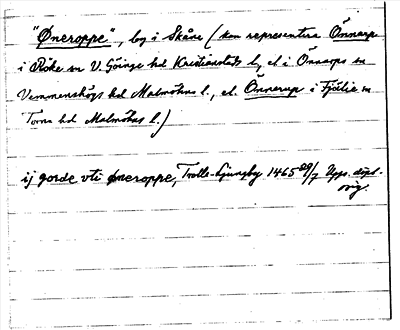 "Øneroppe", by i Skåne (kan representera Önnarp
i Röke sn V. Göinge hd Kristianstads l, el. i Önnarps sn
Vemmenhögs hd Malmöhus l., el. Önnerup i Fjelie sn
Torna hd Malmöhus l.)
ij gorde vti øneroppe, Trolle-Ljungby 1465 29/7 Upps. dipl.
orig.